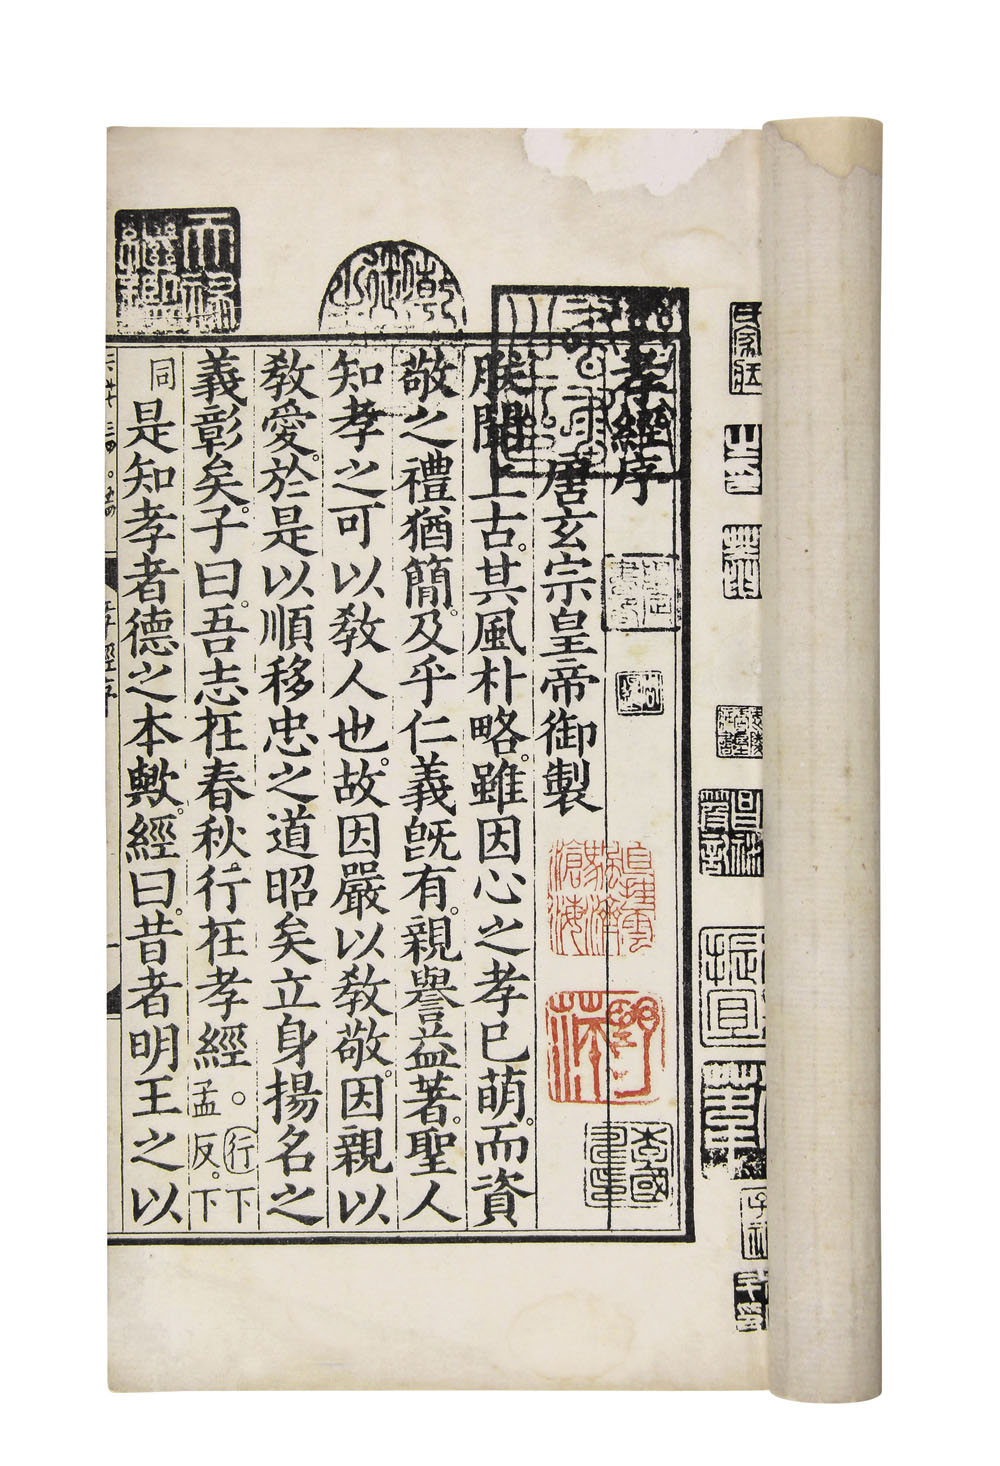 孝經序
唐玄宗皇帝御製
朕聞上古。其風朴略。雖因心之孝已萌。而資
敬之禮猶簡。及乎仁義旣有。親譽益著。聖人
知孝之可以敎人也。故因嚴以敎敬。因親以
敎愛。於是以順移忠之道昭矣立身揚名之
義彰矣。子曰。吾志在春秋。行在孝經。行下孟反。下
同是知孝者德之本歟。經曰。昔者明王之以